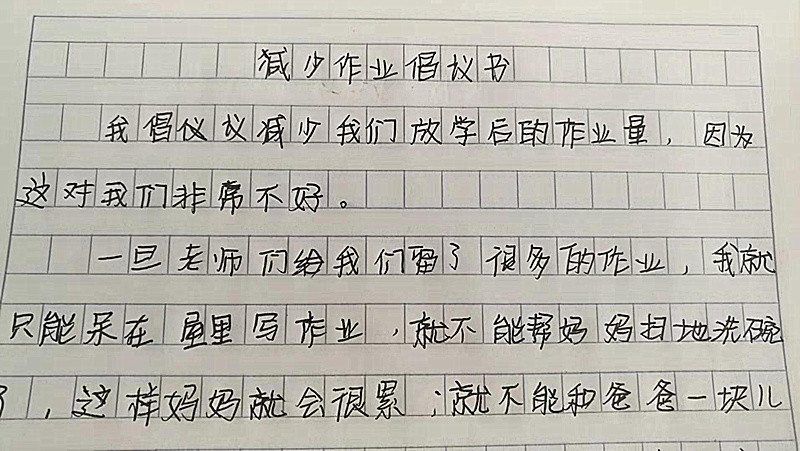 减少作业倡议书
我倡仪议减少我们放学后的作业量，因为
这对我们非常不好。
一旦老师们给我们留了很多的作业，我就
只能呆在屋里写作业，就不能帮妈妈扫地洗碗
了，这样妈妈就会很累；就不能和爸爸一块儿